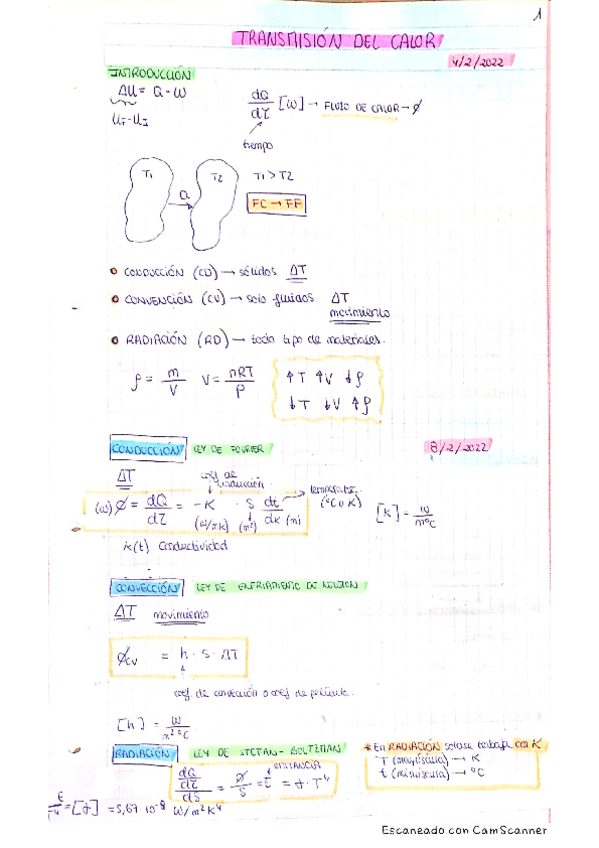 1
TRANSMISIÓN DEL CALOR
4/2/2022
INTRODUCCIÓN
ΔU = Q - W
U_F - U_I
dQ/dτ [W] → FLUJO DE CALOR → ϕ
tiempo
T1 Q T2 T1 > T2
FC → FF
CONDUCCIÓN (CD) → sólidos ΔT
CONVENCIÓN (CV) → solo fluidos ΔT
movimiento
RADIACIÓN (RD) → todo tipo de materiales.
ρ = m/V V = nRT/P ↑T ↑V ↓ρ
↓T ↓V ↑ρ
CONDUCCIÓN LEY DE FOURIER 8/2/2022
ΔT
(W) ϕ = dQ/dτ = -K · S dt/dx (m)
(m²)
(ºC o K)
[k] = W/mºC
k(t) conductividad
CONVECCIÓN LEY DE ENFRIAMIENTO DE NEWTON
ΔT movimiento
ϕcv = h · S · ΔT
coef. de convección o coef. de película.
[h] = W/m²ºC
RADIACIÓN LEY DE STEFAN-BOLTZMAN
* En RADIACIÓN solo se trabaja con K
T (mayúscula) → K
t (minúscula) → ºC
EMITANCIA
= 5,67 · 10⁻⁸ W/m²K⁴
Escaneado con CamScanner